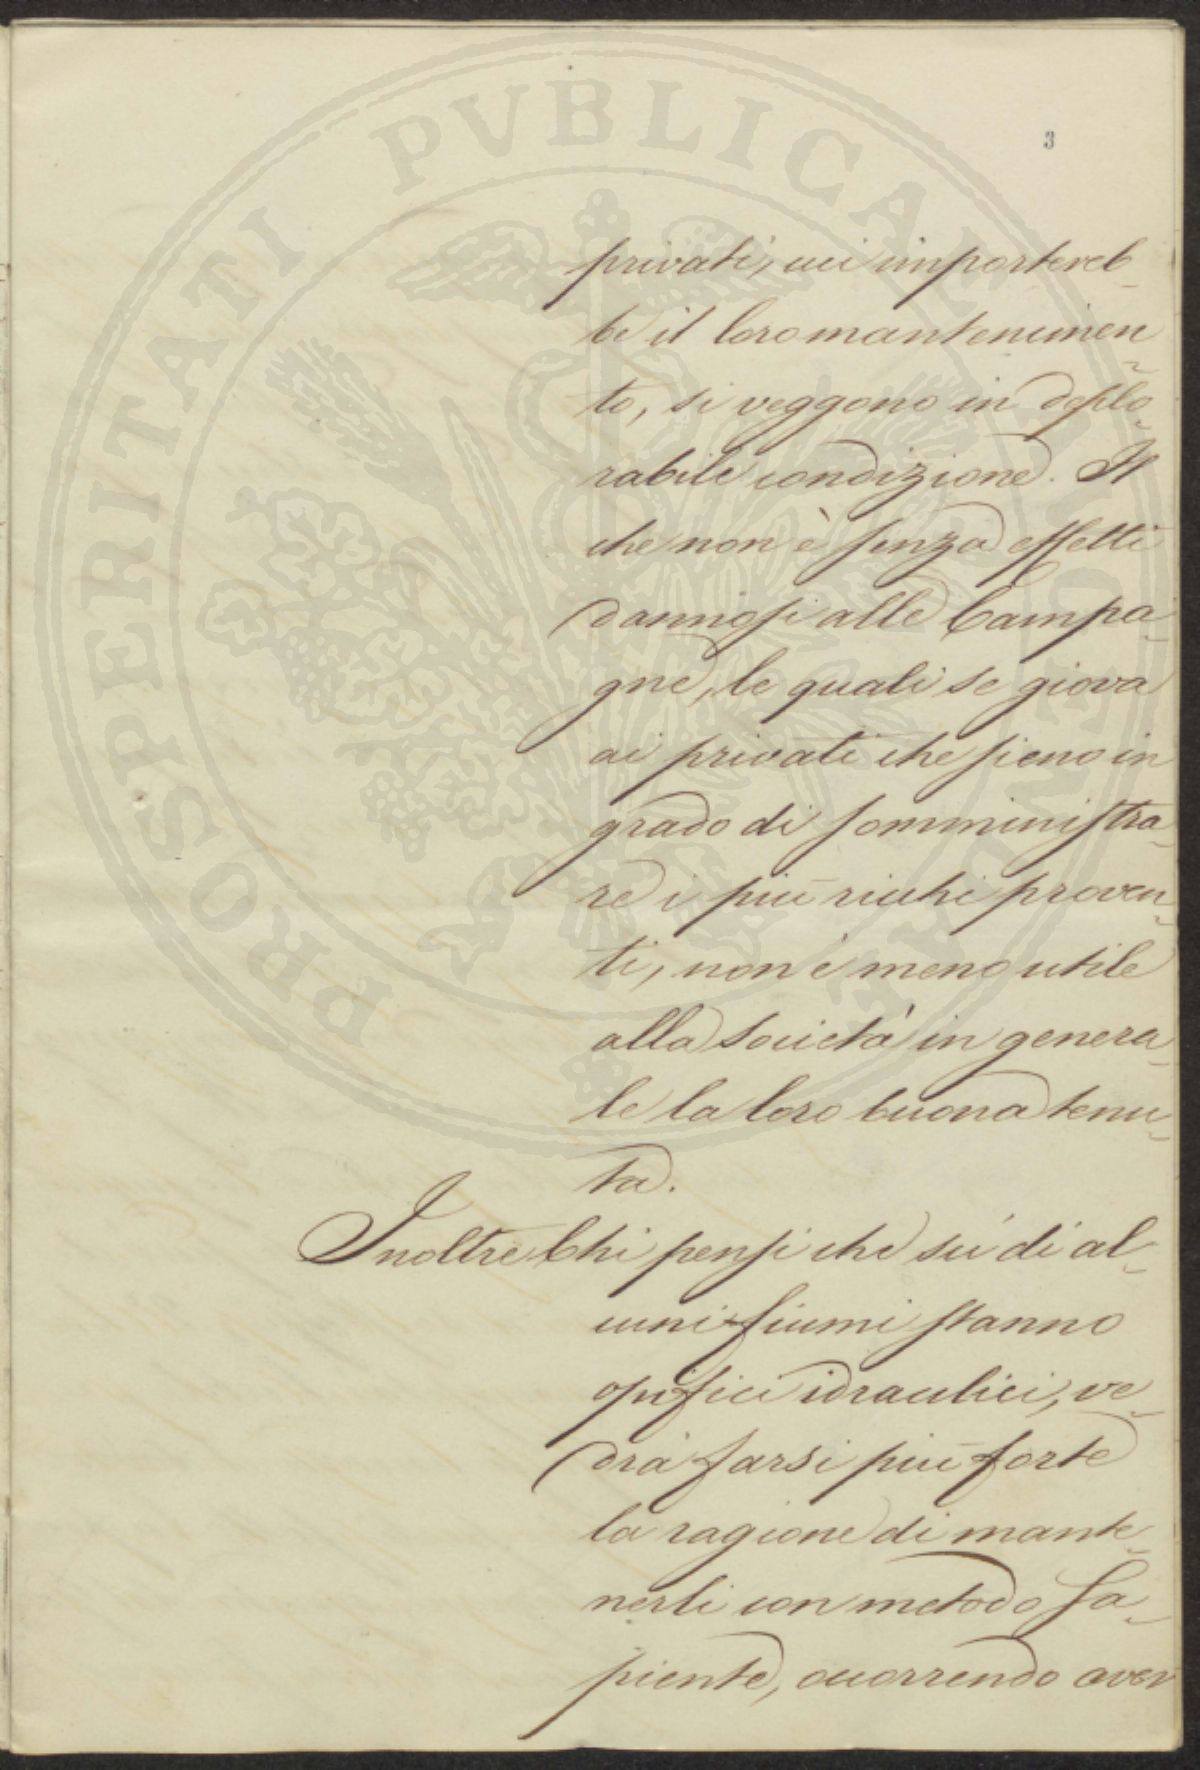 3
privati, cui importereb_
be il loro mantenimen_
to, si veggono in deplo_
rabile condizione. Il
che non è senza effetti
dannosi alle Campa_
gne, le quali se giova
ai privati che sieno in
grado di somministra_
re i più ricchi proven_
ti, non è meno utile
alla società in genera_
le la loro buona tenu_
ta.
Inoltre Chi pensi che sù di al_
cuni fiumi stanno
opifici idraulici, ve_
drà farsi più forte
la ragione di mante_
nerli con metodo sa_
piente, occorrendo aver
PROSPERITATI PVBLICAE